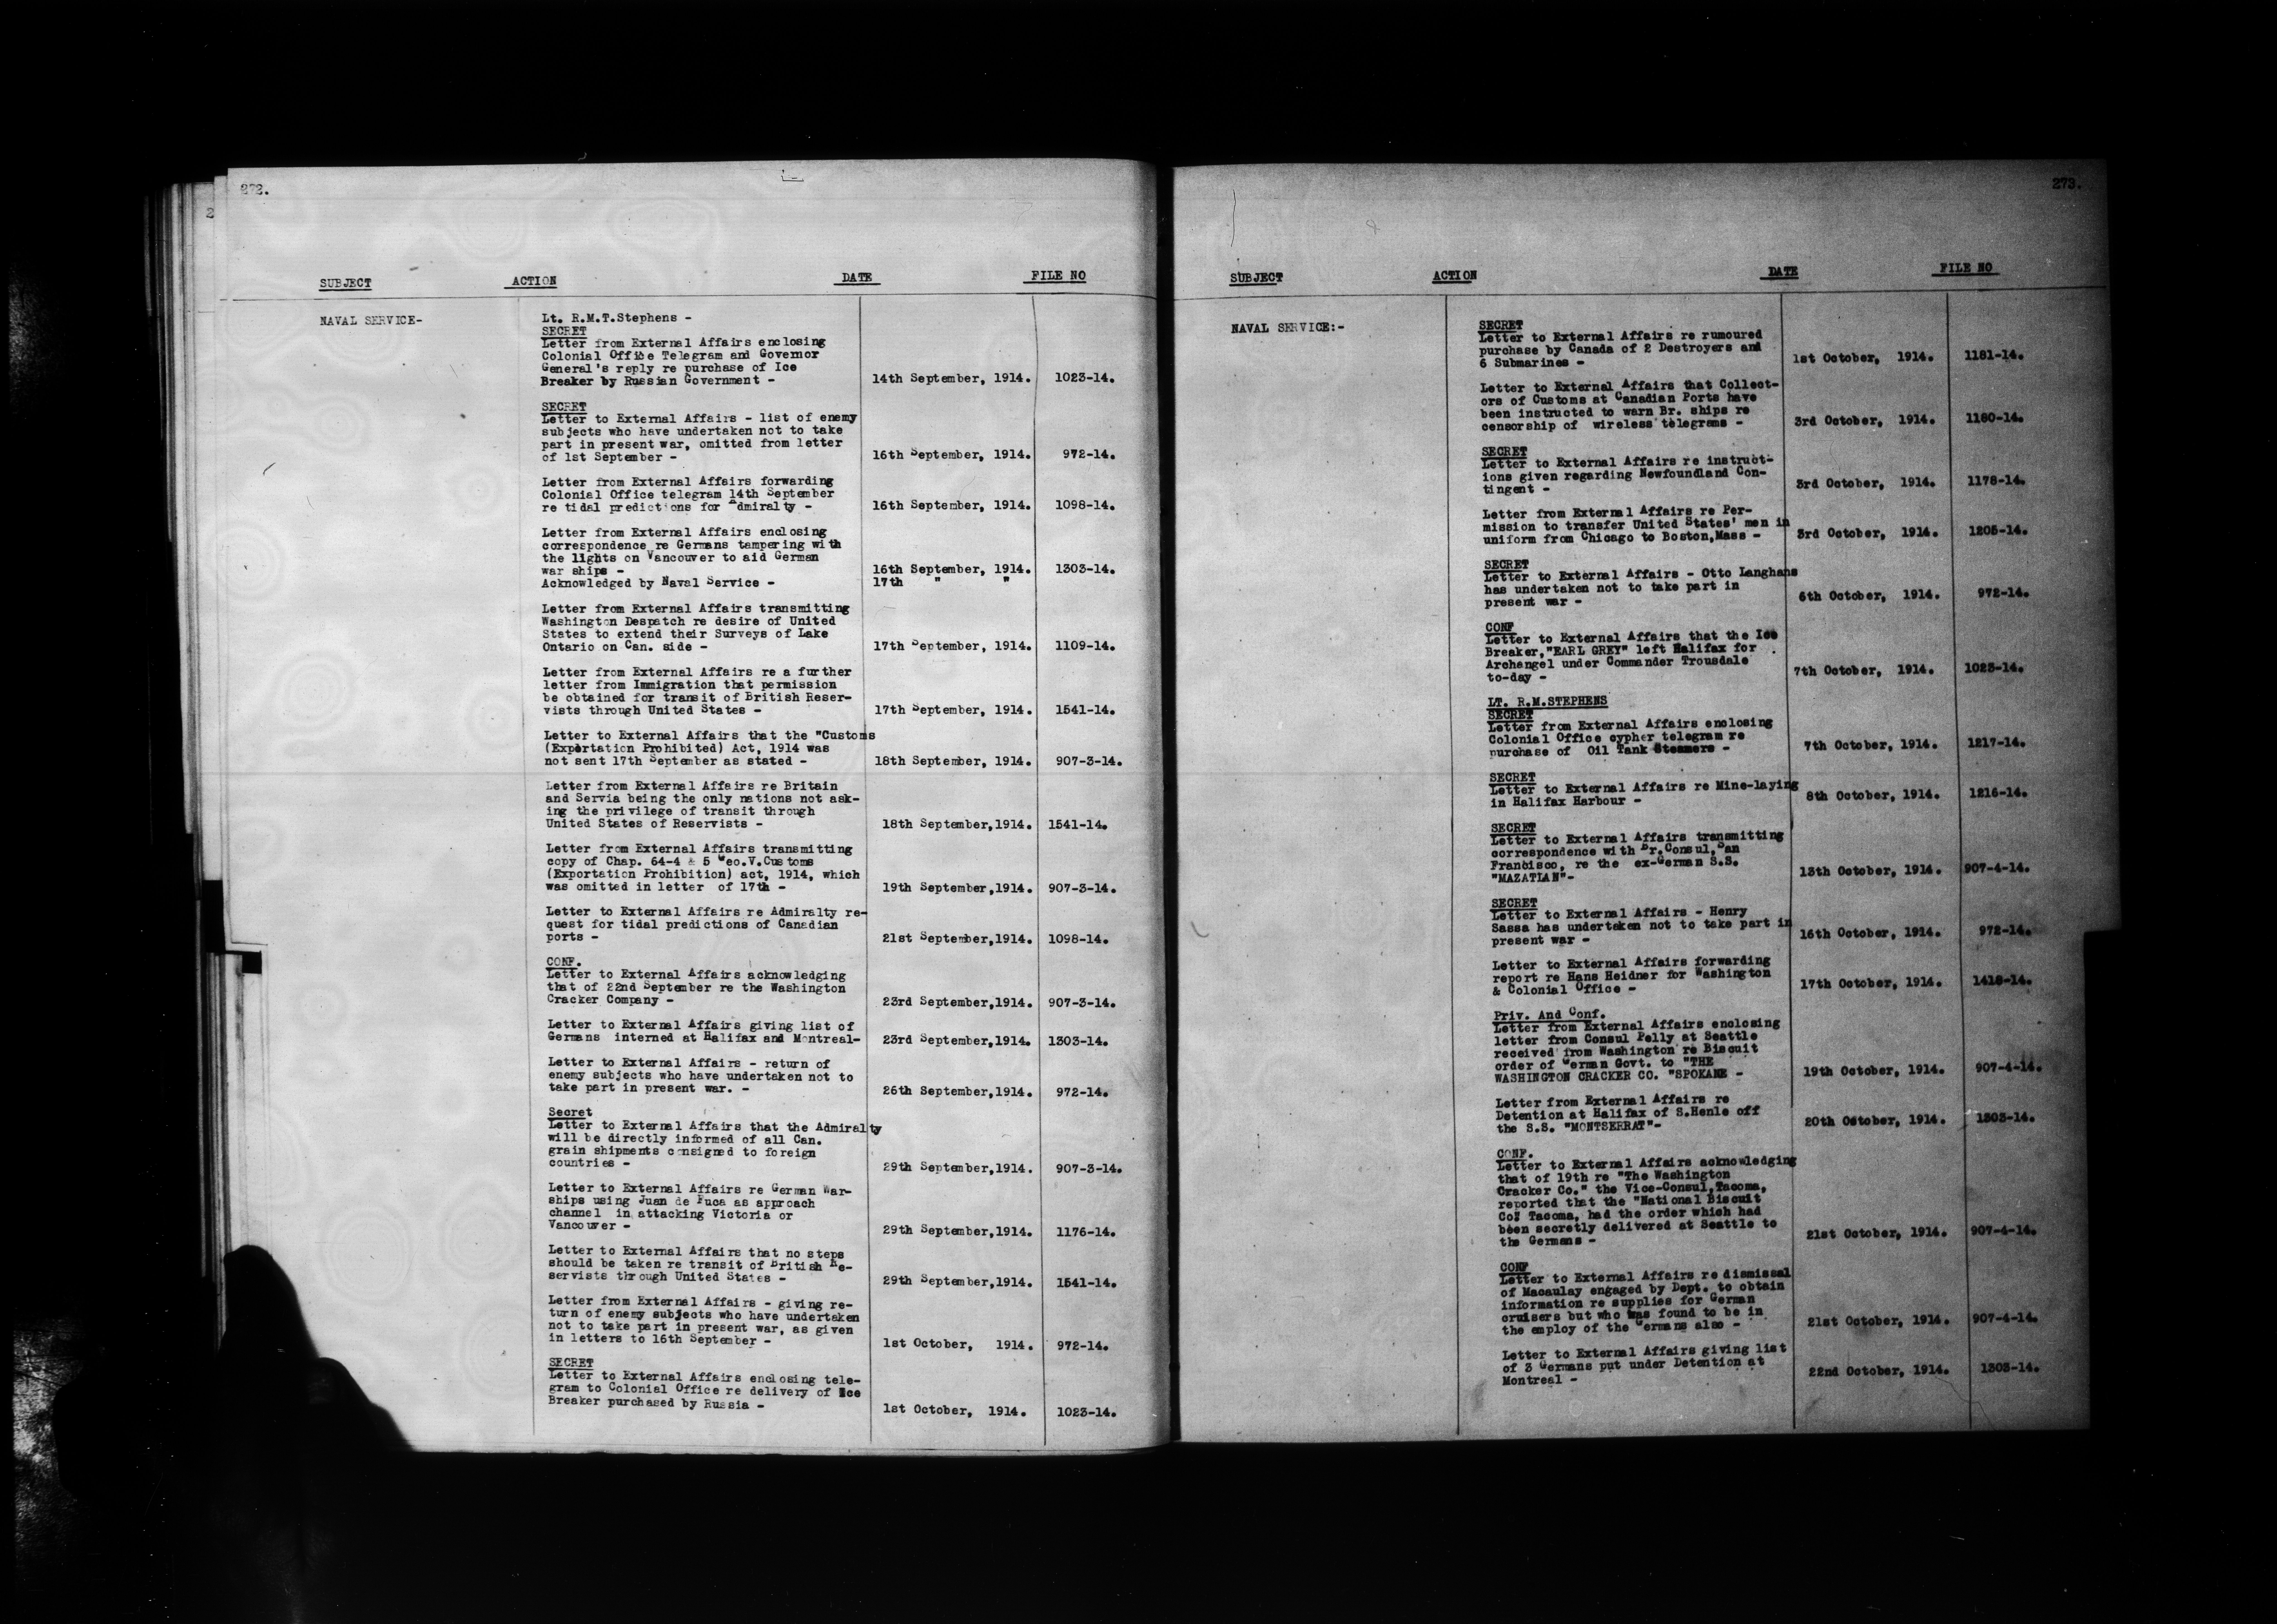 272.
2
SUBJECT ACTION DATE FILE NO
NAVAL SERVICE-
Lt. R.M.T.Stephens -
SECRET
Letter from External Affairs enclosing
Colonial Office Telegram and Governor
General's reply re purchase of Ice
Breaker by Russian Government - 14th September, 1914. 1023-14.
SECRET
Letter to External Affairs - list of enemy
subjects who have undertaken not to take
part in present war, omitted from letter
of 1st September - 16th September, 1914. 972-14.
Letter from External Affairs forwarding
Colonial Office telegram 14th September
re tidal predictions for Admiralty - 16th September, 1914. 1098-14.
Letter from External Affairs enclosing
correspondence re Germans tampering with
the lights on Vancouver to aid German
war ships - 16th September, 1914. 1303-14.
Acknowledged by Naval Service - 17th " "
Letter from External Affairs transmitting
Washington Despatch re desire of United
States to extend their Surveys of Lake
Ontario on Can. side - 17th September, 1914. 1109-14.
Letter from External Affairs re a further
letter from Immigration that permission
be obtained for transit of British Reser-
vists through United States - 17th September, 1914. 1541-14.
Letter to External Affairs that the "Customs
(Exportation Prohibited) Act, 1914 was
not sent 17th September as stated - 18th September, 1914. 907-3-14.
Letter from External Affairs re Britain
and Servia being the only nations not ask-
ing the privilege of transit through
United States of Reservists - 18th September,1914. 1541-14.
Letter from External Affairs transmitting
copy of Chap. 64-4 & 5 Geo.V.Customs
(Exportation Prohibition) act, 1914, which
was omitted in letter of 17th - 19th September,1914. 907-3-14.
Letter to External Affairs re Admiralty re-
quest for tidal predictions of Canadian
ports - 21st September,1914. 1098-14.
CONF.
Letter to External Affairs acknowledging
that of 22nd September re the Washington
Cracker Company - 23rd September,1914. 907-3-14.
Letter to External Affairs giving list of
Germans interned at Halifax and Montreal- 23rd September,1914. 1303-14.
Letter to External Affairs - return of
enemy subjects who have undertaken not to
take part in present war. - 26th September,1914. 972-14.
Secret
Letter to External Affairs that the Admiralty
will be directly informed of all Can.
grain shipments consigned to foreign
countries - 29th September,1914. 907-3-14.
Letter to External Affairs re German War-
ships using Juan de Fuca as approach
channel in attacking Victoria or
Vancouver - 29th September,1914. 1176-14.
Letter to External Affairs that no steps
should be taken re transit of British Re-
servists through United States - 29th September,1914. 1541-14.
Letter from External Affairs - giving re-
turn of enemy subjects who have undertaken
not to take part in present war, as given
in letters to 16th September - 1st October, 1914. 972-14.
SECRET
Letter to External Affairs enclosing tele-
gram to Colonial Office re delivery of Ice
Breaker purchased by Russia - 1st October, 1914. 1023-14.
273.
SUBJECT ACTION DATE FILE NO
NAVAL SERVICE:-
SECRET
Letter to External Affairs re rumoured
purchase by Canada of 2 Destroyers and
6 Submarines - 1st October, 1914. 1181-14.
Letter to External Affairs that Collect-
ors of Customs at Canadian Ports have
been instructed to warn Br. ships re
censorship of wireless telegrams - 3rd October, 1914. 1180-14.
SECRET
Letter to External Affairs re instruct-
ions given regarding Newfoundland Con-
tingent - 3rd October, 1914. 1178-14.
Letter from External Affairs re Per-
mission to transfer United States' men in
uniform from Chicago to Boston,Mass - 3rd October, 1914. 1205-14.
SECRET
Letter to External Affairs - Otto Langhans
has undertaken not to take part in
present war - 6th October, 1914. 972-14.
CONF
Letter to External Affairs that the Ice
Breaker,"EARL GREY" left Halifax for
Archangel under Commander Trousdale
to-day - 7th October, 1914. 1023-14.
LT. R.M.STEPHENS
SECRET
Letter from External Affairs enclosing
Colonial Office cypher telegram re
purchase of Oil Tank Steamers - 7th October, 1914. 1217-14.
SECRET
Letter to External Affairs re Mine-laying
in Halifax Harbour - 8th October, 1914. 1216-14.
SECRET
Letter to External Affairs transmitting
correspondence with Br.Consul,San
Francisco, re the ex-German S.S.
"MAZATLAN"- 13th October, 1914. 907-4-14.
SECRET
Letter to External Affairs - Henry
Sassa has undertaken not to take part in
present war - 16th October, 1914. 972-14.
Letter to External Affairs forwarding
report re Hans Heidner for Washington
& Colonial Office - 17th October, 1914. 1418-14.
Priv. And Conf.
Letter from External Affairs enclosing
letter from Consul Pelly at Seattle
received from Washington re Biscuit
order of German Govt. to "THE
WASHINGTON CRACKER CO. "SPOKANE - 19th October, 1914. 907-4-14.
Letter from External Affairs re
Detention at Halifax of S.Henle off
the S.S. "MONTSERRAT"- 20th October, 1914. 1303-14.
CONF.
Letter to External Affairs acknowledging
that of 19th re "The Washington
Cracker Co." the Vice-Consul,Tacoma,
reported that the "National Biscuit
Co" Tacoma, had the order which had
been secretly delivered at Seattle to
the Germans - 21st October, 1914. 907-4-14.
CONF
Letter to External Affairs re dismissal
of Macaulay engaged by Dept. to obtain
information re supplies for German
cruisers but who was found to be in
the employ of the Germans also - 21st October, 1914. 907-4-14.
Letter to External Affairs giving list
of 3 Germans put under Detention at
Montreal - 22nd October, 1914. 1303-14.